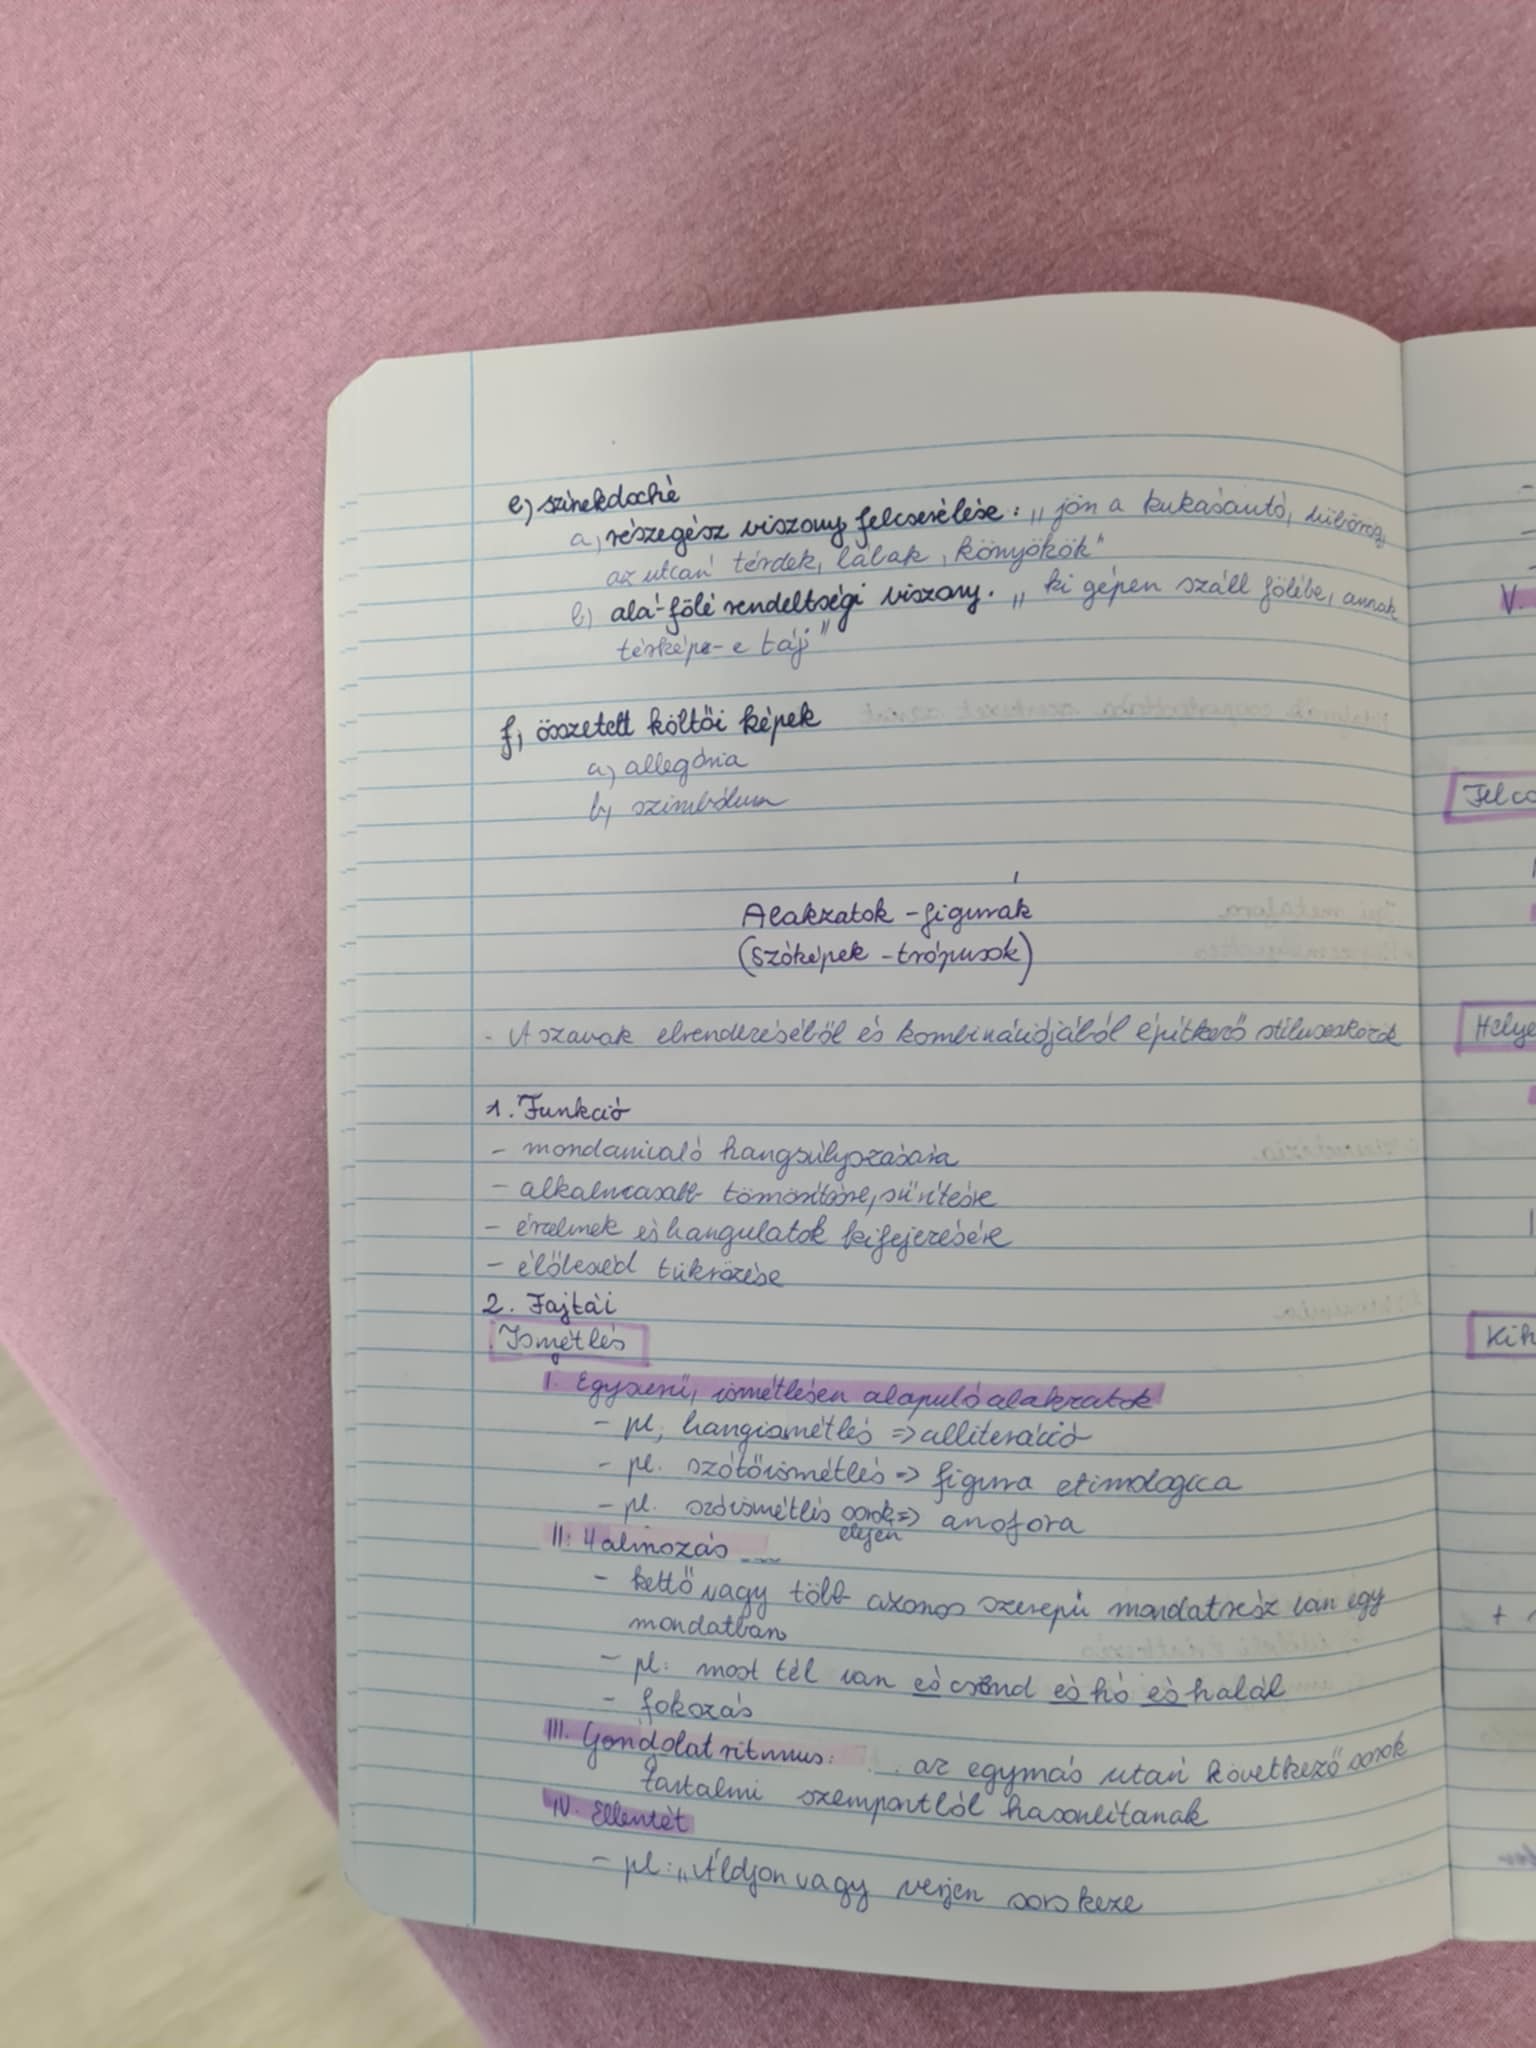 e) szinekdoché
a, részegész viszony felcserélése: „jön a kukásautó, hibároz,
az utcán térdek, lábak, könyökök"
b) alá-fölé rendeltségi viszony. „ki gépen száll fölébe, annak
térképe- e táj"
f, összetett költői képek
a) allegória
b, szimbólum
Alakzatok - figurák
(szóképek - trópusok)
- A szavak elrendezéséből és kombinációjából építkező stíluseszközök
1. Funkció
- mondanivaló hangsúlyozására
- alkalmasabb tömörítésre, sűrítésre
- érzelmek és hangulatok kifejezésére
- élőbeszéd tükrözése
2. Fajtái
Ismétlés
I. Egyszerű, ismétlésen alapuló alakzatok
- pl, hangismétlés => alliteráció
- pl. szótőismétlés => figura etimologica
- pl. szóismétlés sorok elején => anofora
II. Halmozás
- kettő vagy több azonos szerepű mondatrész van egy
mondatban
- pl: most tél van és csönd és hó és halál
- fokozás
III. Gondolatritmus: az egymás után következő sorok
tartalmi szempontból hasonlítanak
IV. Ellentét
- pl: „Áldjon vagy verjen sors keze
V.
Felc
Helye
Kih
+